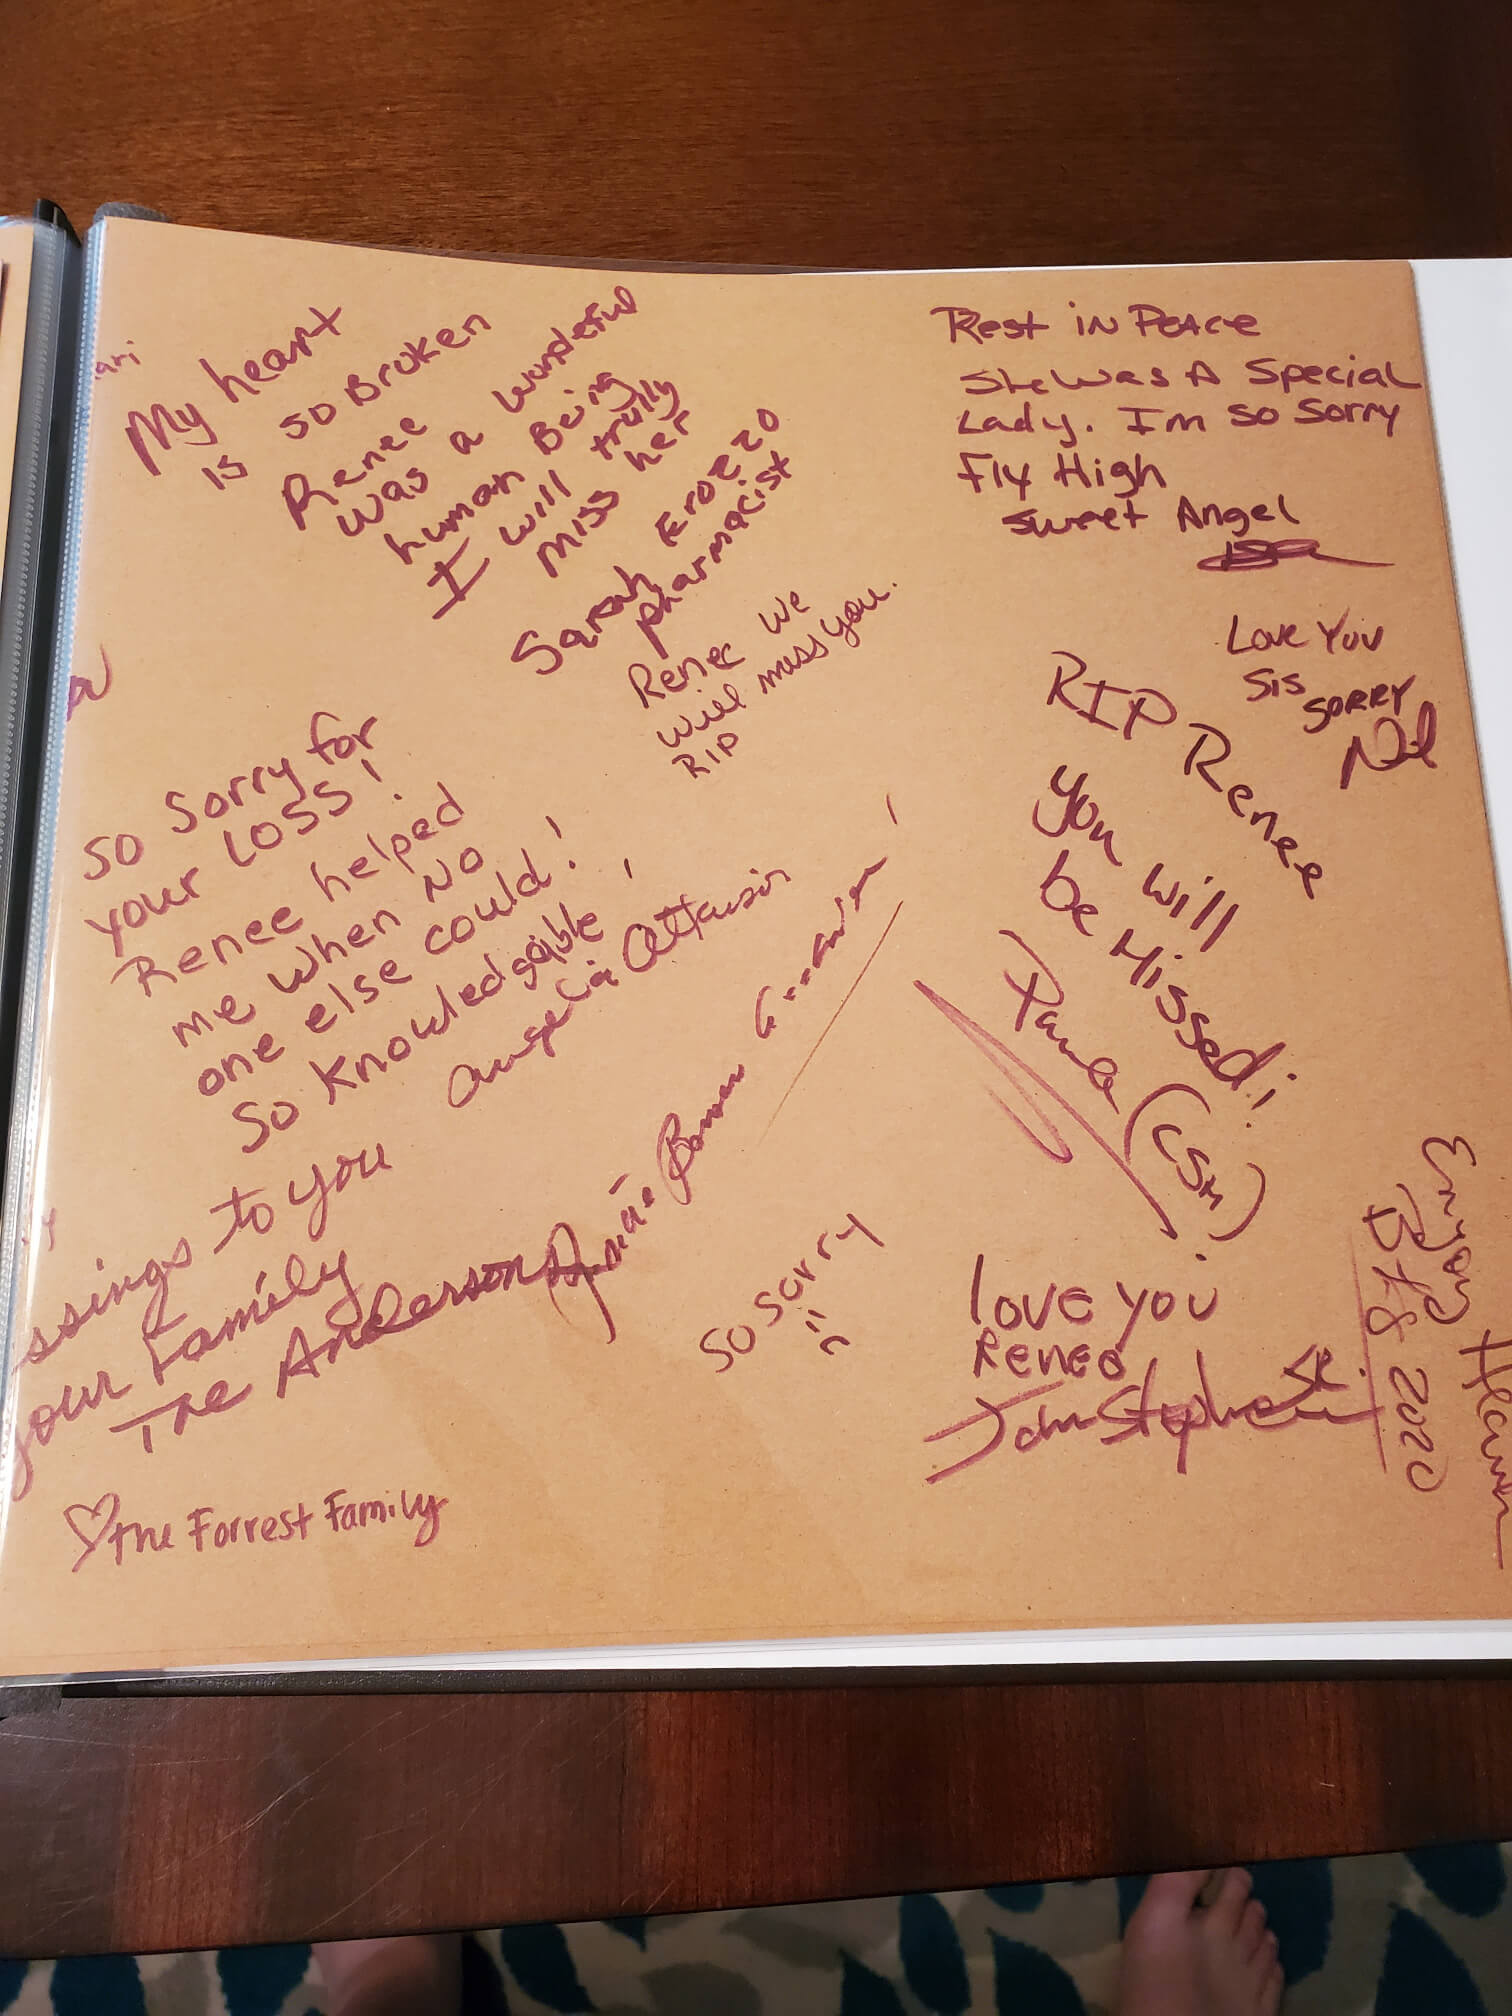 My heart
is so Broken
Renee
was a wonderful
human Being
I will trully
miss her
Sarah Erozzo
pharmacist
Rest in Peace
She was A Special
Lady. I'm so sorry
Fly High
Sweet Angel
Love You
Sis
SORRY
Renee We
will miss you.
RIP
RIP Renee
You will
be Missed!
Paula (CSM)
So Sorry for
your LOSS!
Renee helped
me when No
one else could!
So Knowledgable!
Angelia
ssings to you
your Family
The Andersons
So Sorry
Love you
Renee
John Stephens Sr.
Enjoy Heaven
2020
The Forrest Family